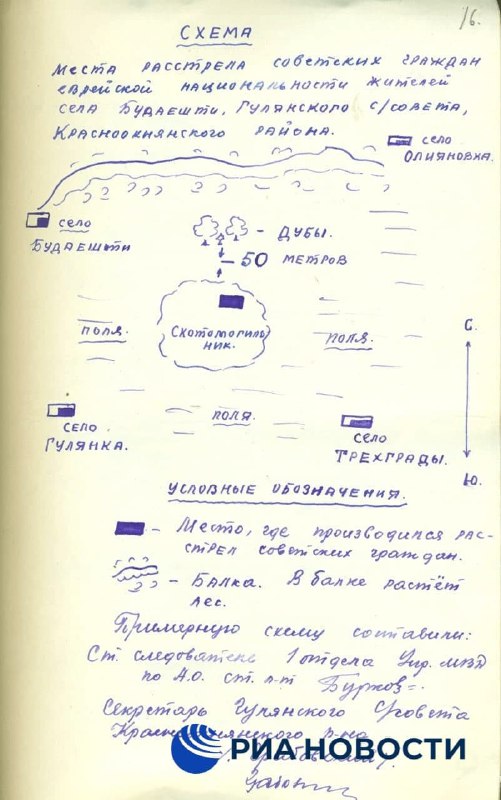 16.
СХЕМА
Места расстрела советских граждан
еврейской национальности жителей
села Будаешти, Гулянского с/совета,
Красноокнянского района.
село
Олияновка.
село
Будаешти
- Дубы.
50 метров
Скотомогиль-
ник.
поля.
поля.
С.
Ю.
село
Гулянка.
поля.
село
Трехграды.
Условные обозначения.
- Место, где производился рас-
стрел советских граждан.
- Балка. В балке растёт
лес.
Примерную схему составили:
Ст. следователь 1 отдела Упр. МВД
по А.О. ст. л-т Бурков
Секретарь Гулянского с/совета
р-на
РИА НОВОСТИ